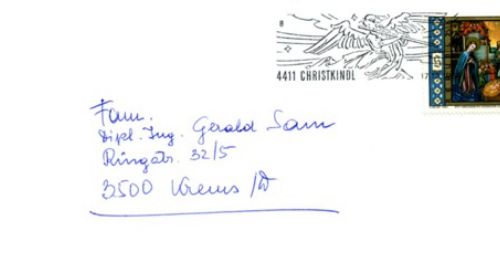 8
4411 CHRISTKINDL
17.
S
Fam.
Dipl. Ing. Gerald Sam
Ringstr. 32/5
3500 Krems /D